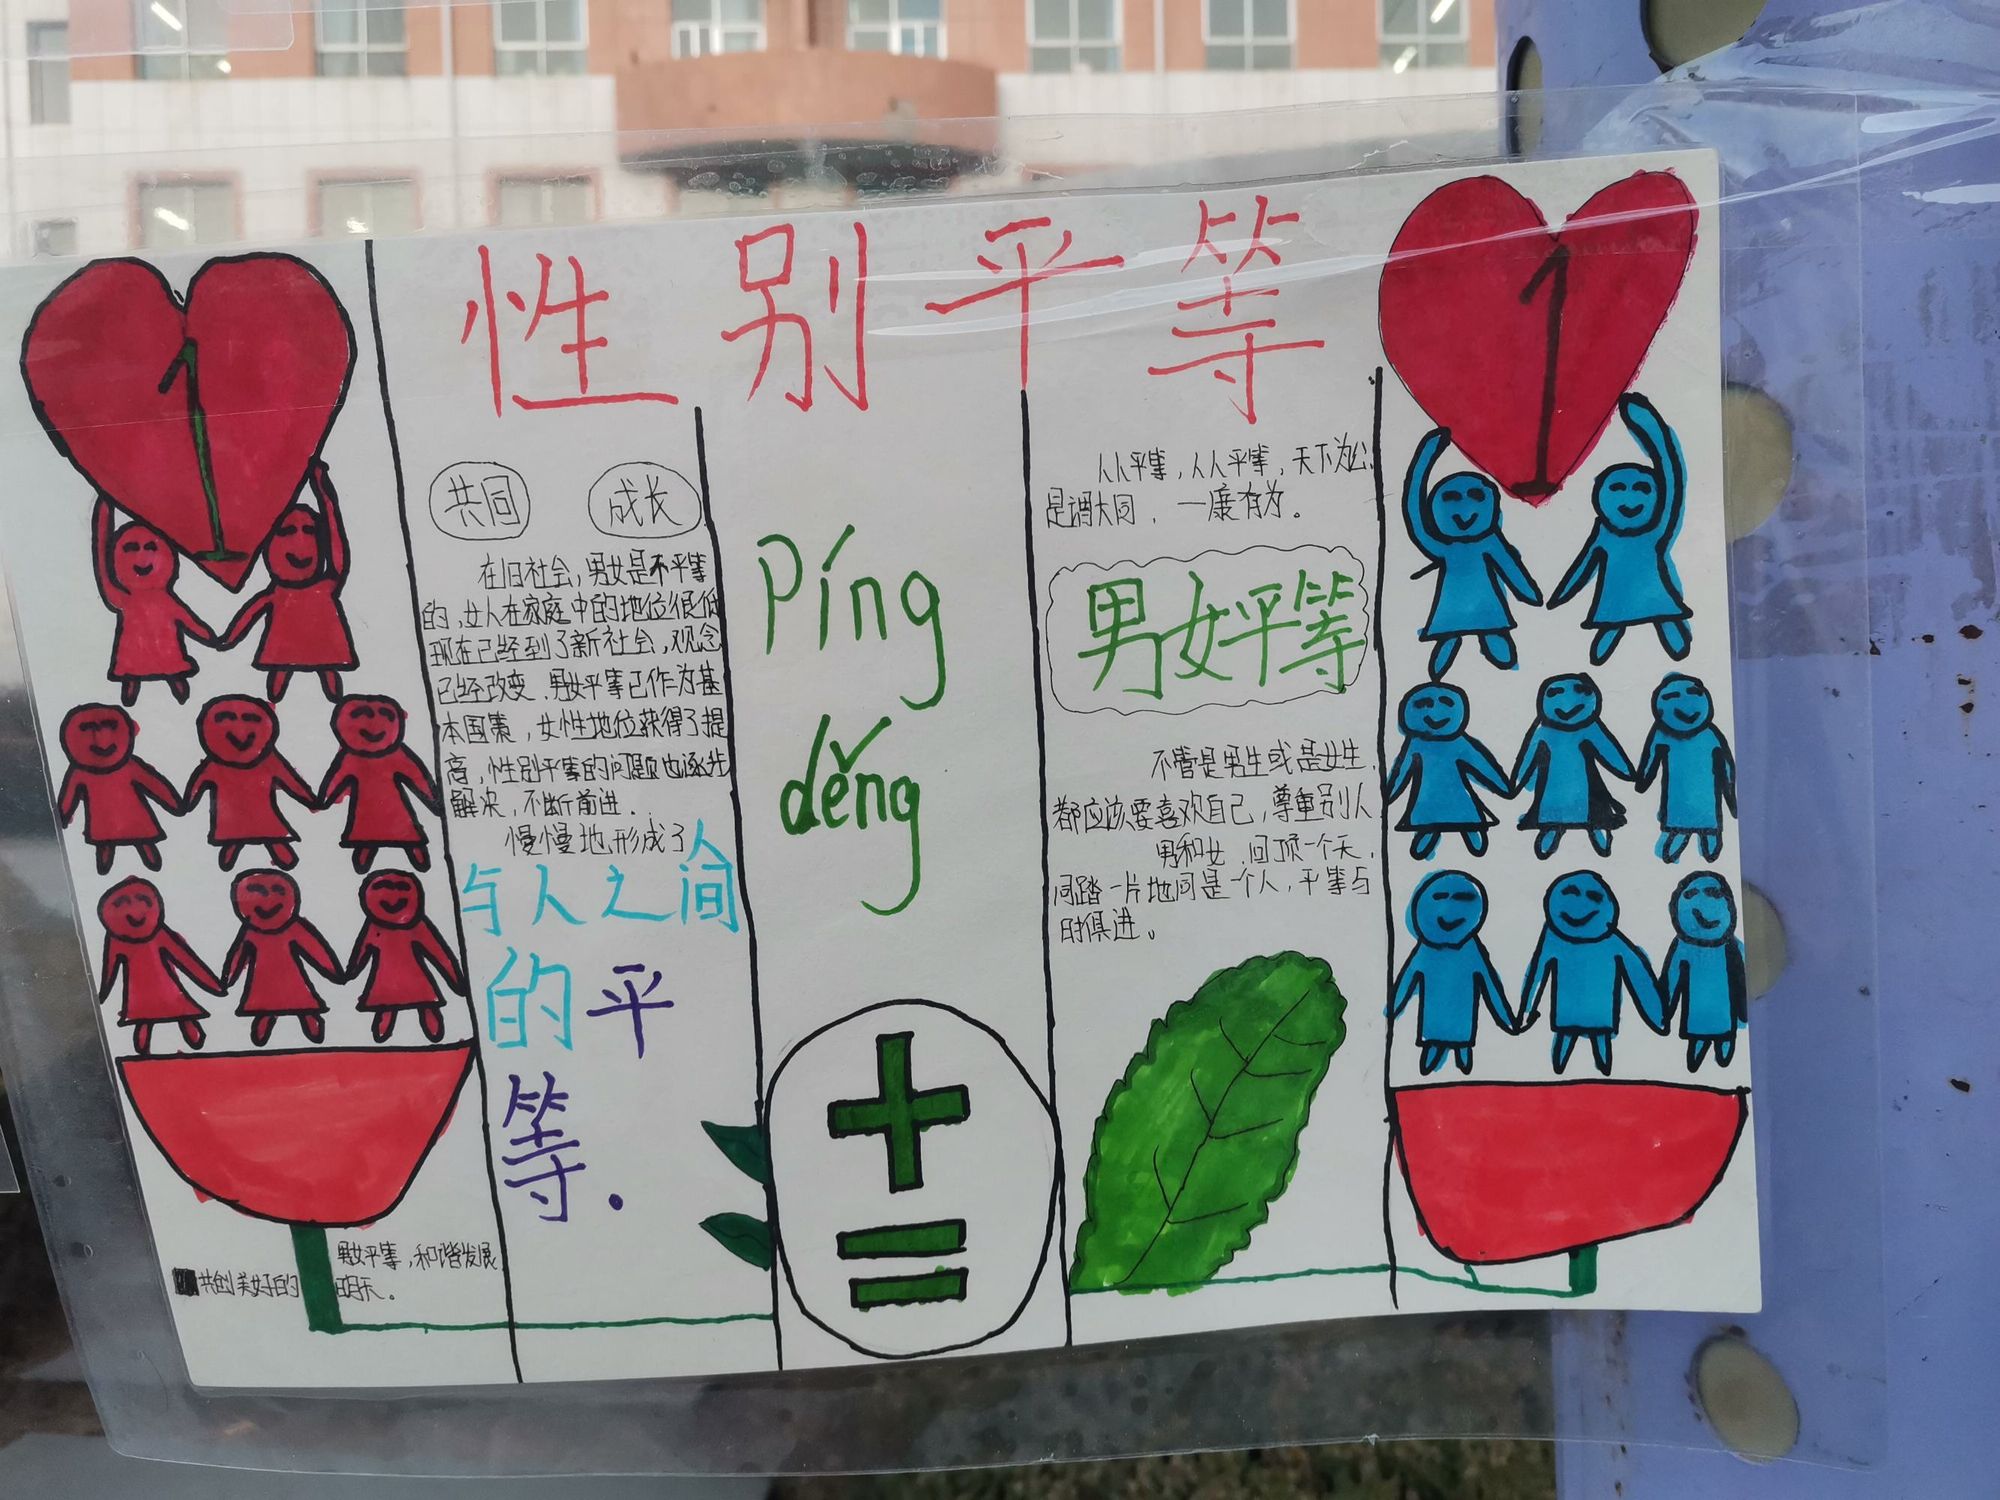 性别平等
1
1
共同 成长
在旧社会,男女是不平等
的,女人在家庭中的地位很低
现在已经到了新社会,观念
已经改变.男女平等已作为基
本国策,女性地位获得了提
高,性别平等的问题也逐步
解决,不断前进.
慢慢地形成了人
与人之间
的平
等.
Píng
děng
+
=
人人平等,人人平等,天下为公,
是谓大同,一康有为。
男女平等
不管是男生或是女生,
都应该要喜欢自己,尊重别人
男和女.同顶一个天,
同踏一片地同是一个人,平等与
时俱进。
男女平等,和谐发展
共创美好的 明天。